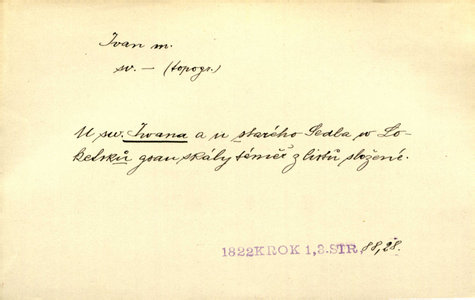 Ivan m.
sv. — (topogr.)
U sw. Iwana a u starého Sedla w Lo-
ketsků gsau skály téměř z listů složené.
1822 KROK 1,3. STR. 88,28.